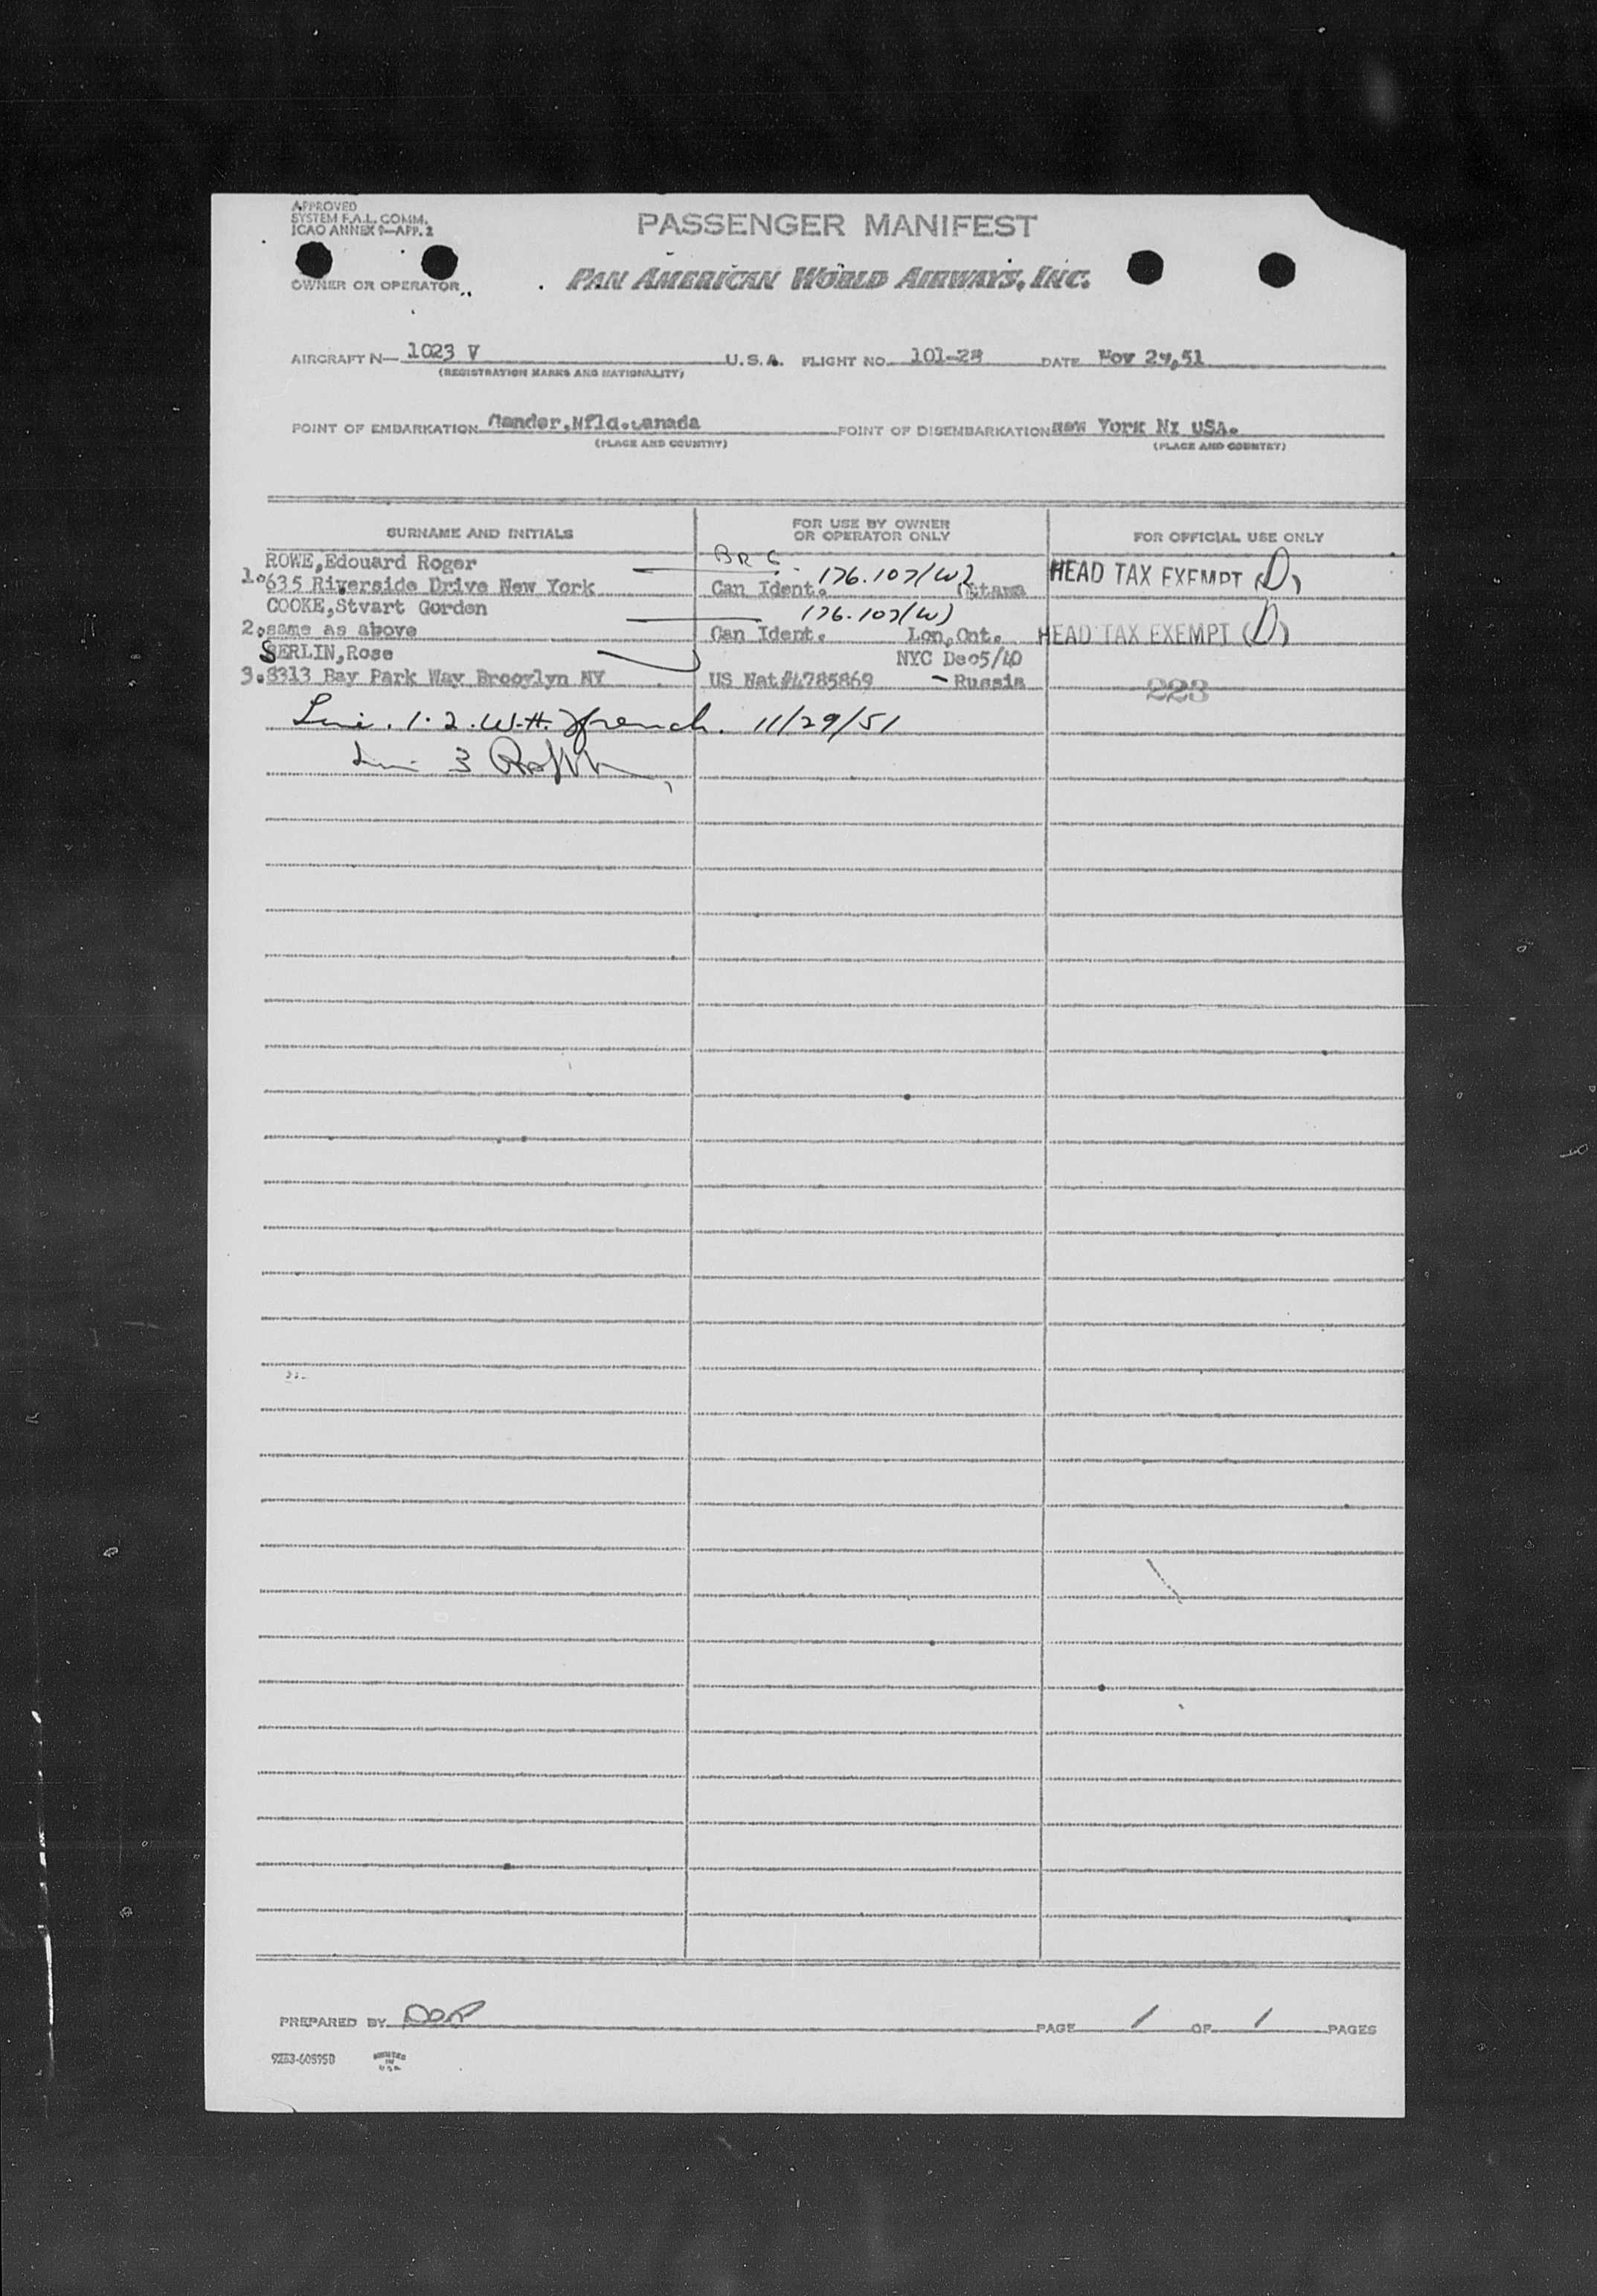 APPROVED
SYSTEM F.A.L. COMM.
ICAO ANNEX 9—APP. 2
PASSENGER MANIFEST
OWNER OR OPERATOR
PAN AMERICAN WORLD AIRWAYS, INC.
AIRCRAFT N— 1023 V U.S.A. FLIGHT NO. 101-28 DATE Nov 29,51
(REGISTRATION MARKS AND NATIONALITY)
POINT OF EMBARKATION Gander,Nfld.Canada POINT OF DISEMBARKATION New York NY USA.
(PLACE AND COUNTRY) (PLACE AND COUNTRY)
SURNAME AND INITIALS FOR USE BY OWNER OR OPERATOR ONLY FOR OFFICIAL USE ONLY
ROWE,Edouard Roger
1.635 Riverside Drive New York Can Ident. 176.107(W) Ottawa HEAD TAX EXEMPT (D)
COOKE,Stvart Gordon 176.107(W)
2.same as above Can Ident. Lon,Ont. HEAD TAX EXEMPT (D)
SERLIN,Rose NYC Dec5/40
3.8313 Bay Park Way Brooylyn NY US Nat#4785869 - Russia 223
Line. 1-2. W.H. French. 11/29/51
Line 3
PREPARED BY DOR PAGE 1 OF 1 PAGES
PRINTED
IN
U.S.A.